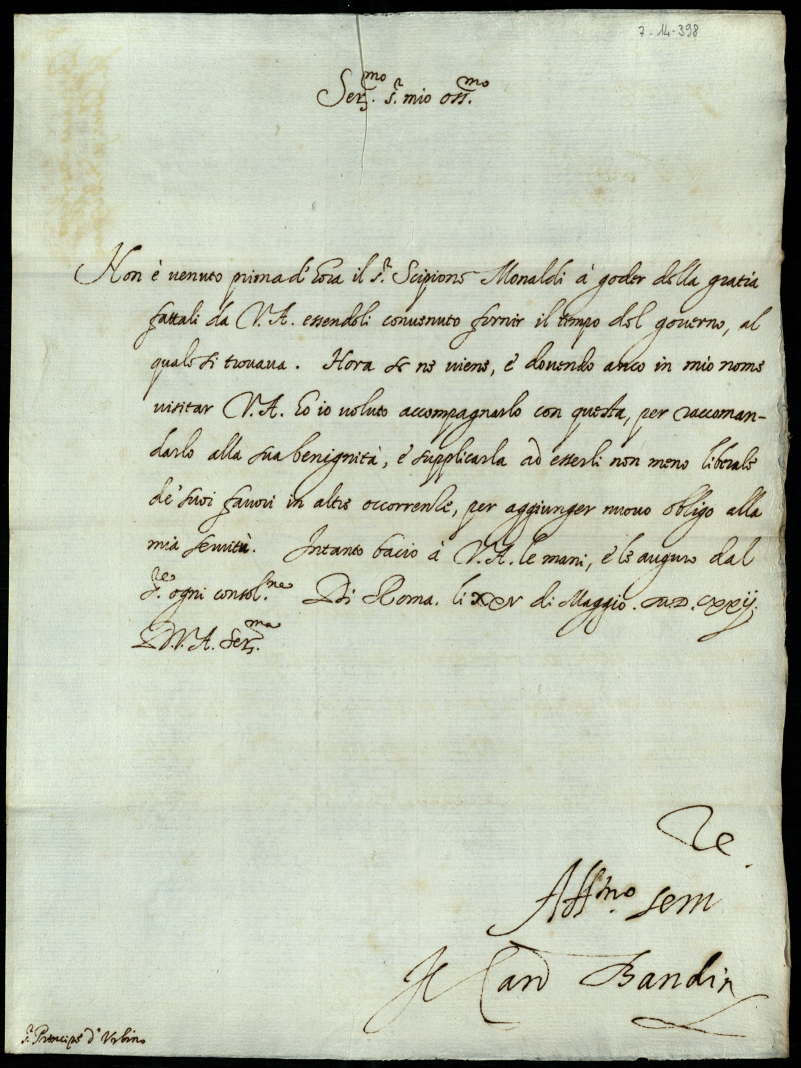 7-14-398
Ser.mo s.r mio oss.mo
Non è venuto prima d'hora il s.r Scipione Monaldi à goder della gratia
fattali da V.A. essendoli convenuto fornir il tempo del governo, al
quale si trovava. Hora se ne viene, e dovendo anco in mio nome
visitar V.A. ho io voluto accompagnarlo con questa, per raccoman-
darlo alla sua benignità, e supplicarla ad esserli non meno liberale
de' suoi favori in altre occorrenze, per aggiunger nuovo obligo alla
mia servitù. Intanto bacio à V.A. le mani, e le auguro dal
s.re ogni consol.ne Di Roma. li xxv di Maggio. M.D.CXXIJ.
D.V.A. Ser.ma
Re
Aff.mo ser
Il Card Bandin
s.r Prencipe d'Urbino